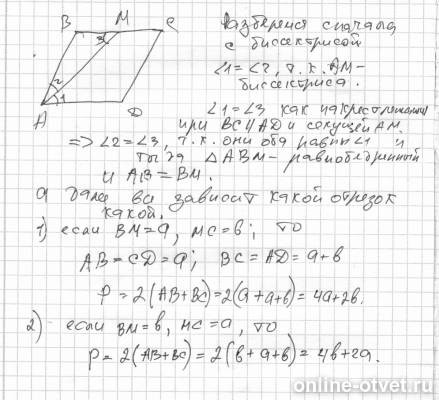 B M C
3
2
1
A D
Разберемся сначала
с биссектрисой
∠1=∠2, т.к. AM-
биссектриса.
∠1=∠3 как накрестлежащие
при BC∥AD и секущей AM.
=> ∠2=∠3, т.к. они оба равны ∠1 и
тогда △ABM- равнобедренный
и AB=BM.
А далее все зависит какой отрезок
какой.
1) если BM=a, MC=b; то
AB=CD=a; BC=AD=a+b
P=2(AB+BC)=2(a+a+b)=4a+2b.
2) если BM=b, MC=a, то
P=2(AB+BC)=2(b+a+b)=4b+2a.
online-otvet.ru